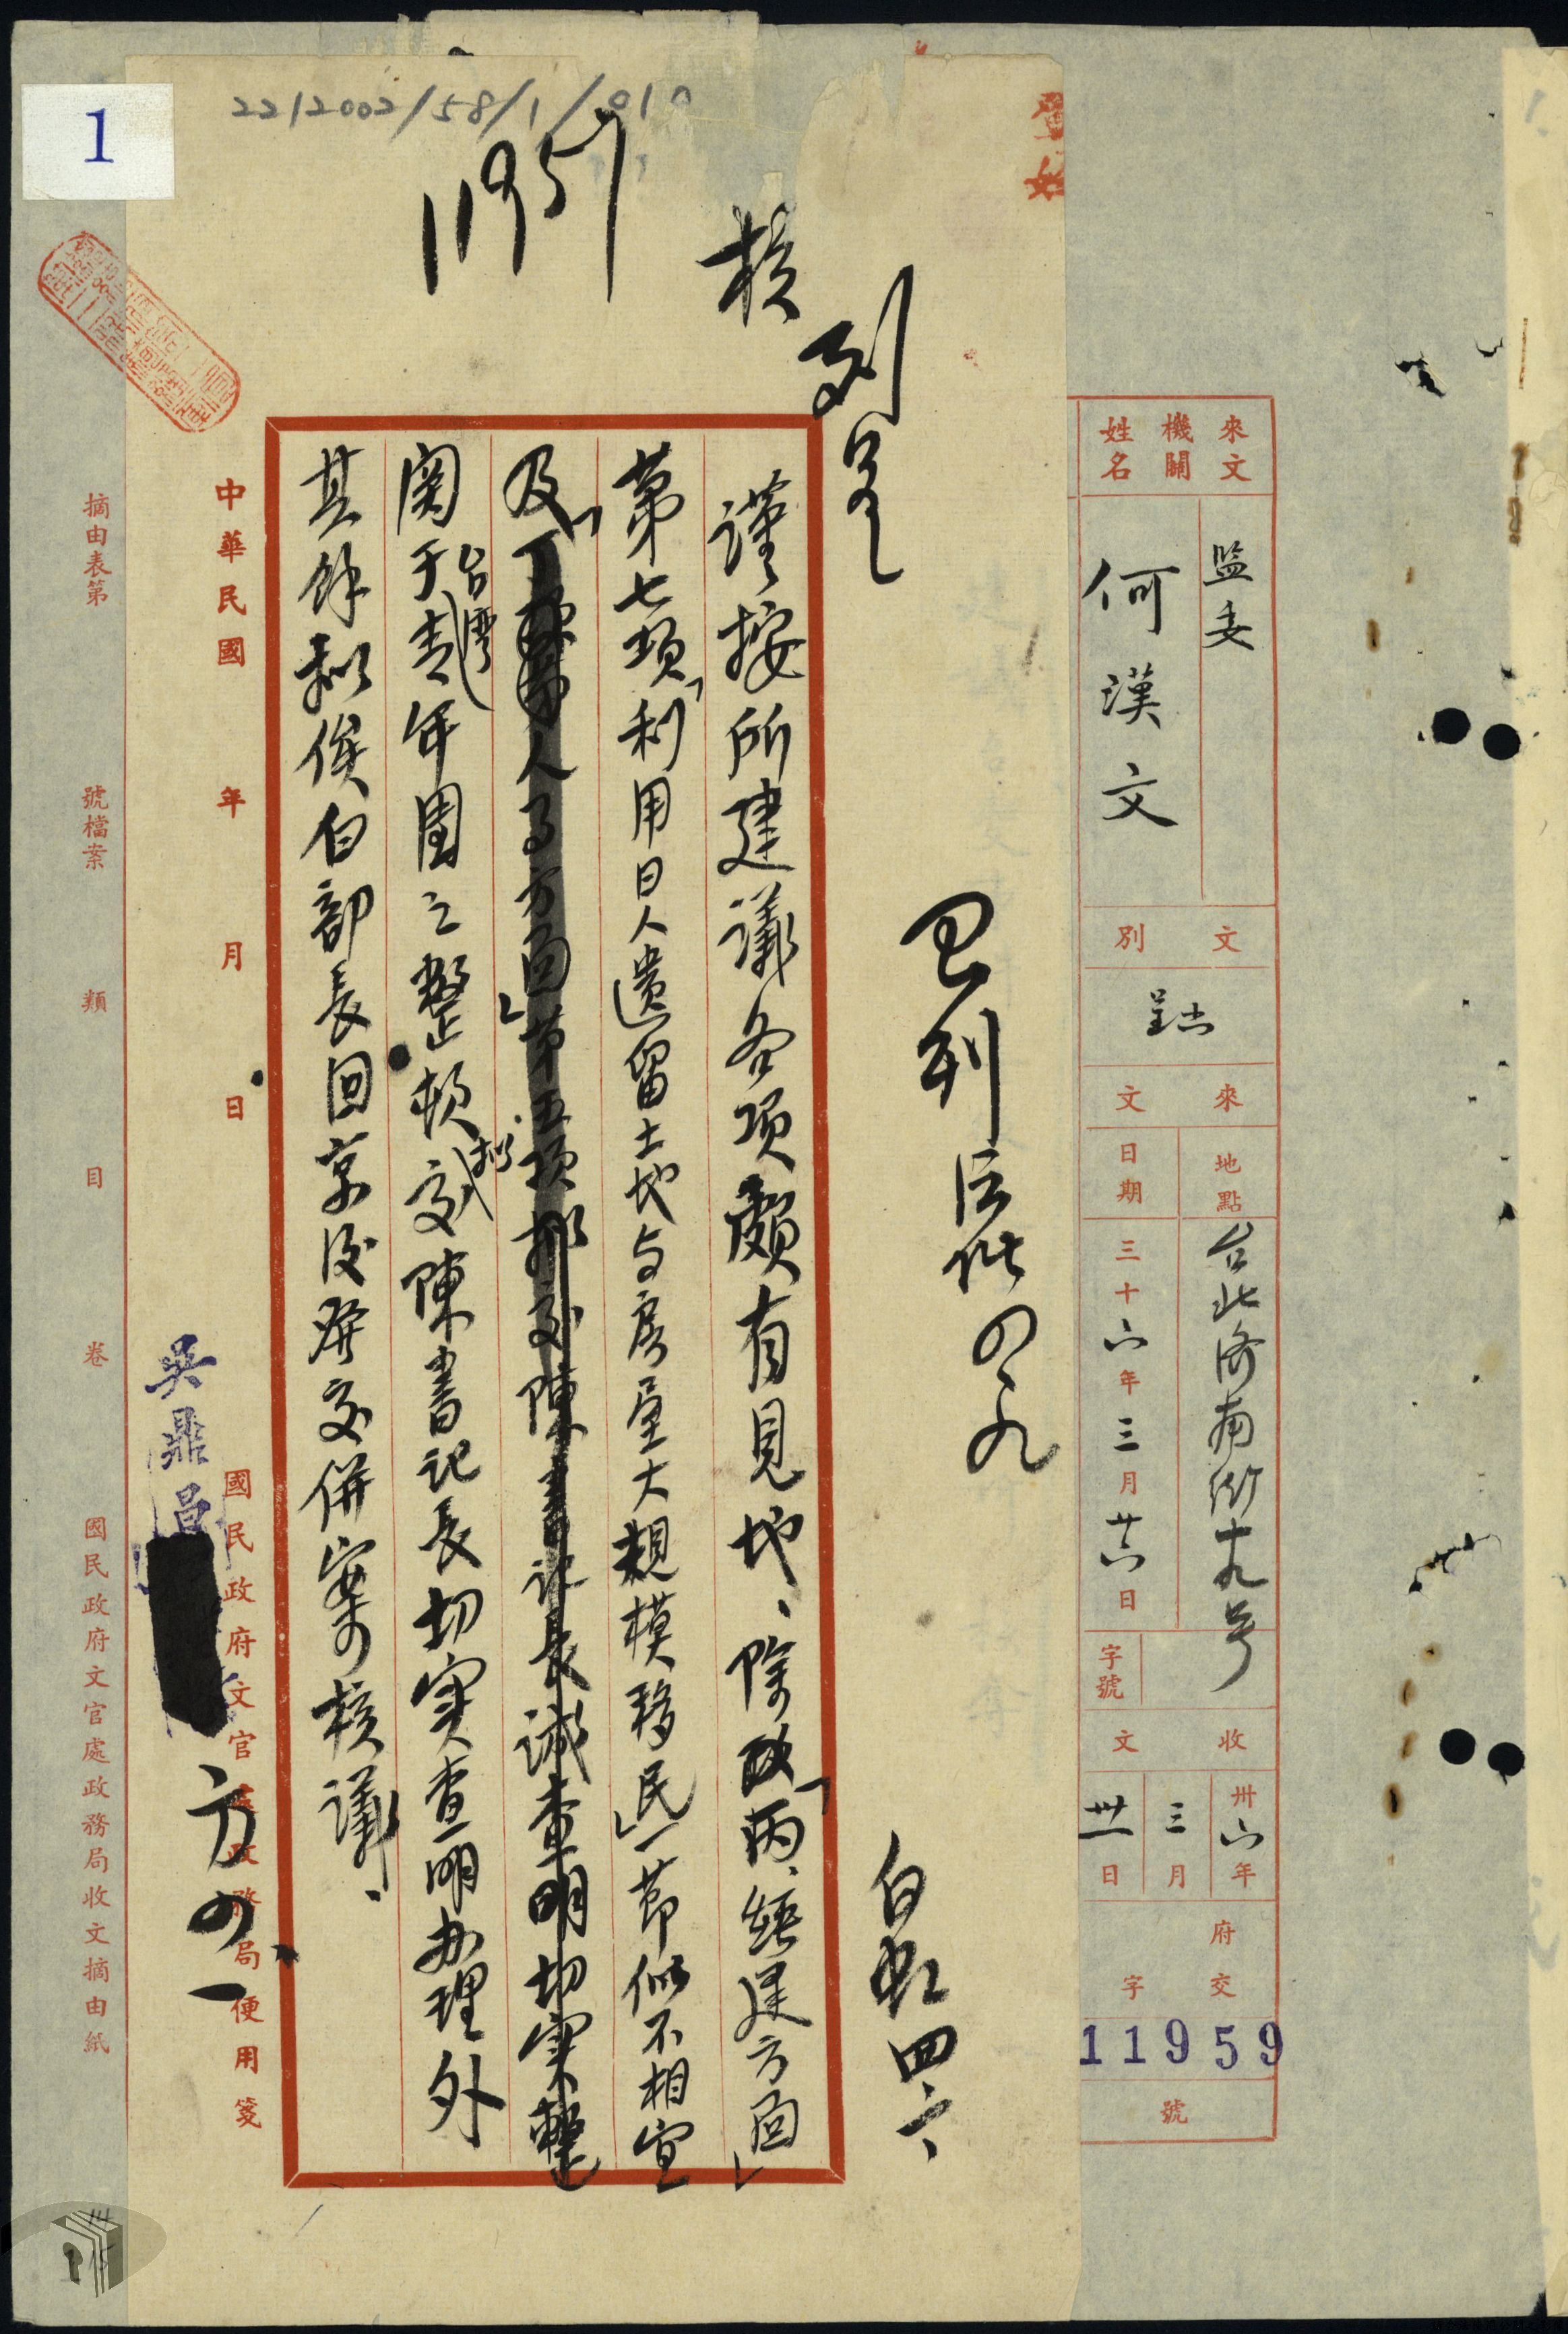 1
22/2002/58/1/010
11957
來文機關姓名
監委
何漢文
文別
呈
來文
地點
台北濟南街十九号
日期
三十六年三月廿六日
字號
收文
卅六年三月卅一日
府交字
11959
號
核
已列
四、九
白
四六、
謹按所建議各項頗有見地、除「丙、經建方面」
第七項「利用日人遺留土地与房屋大規模移民」一節似不相宜
及「丁、人事方面」第五項拟交陳書記長誠查明切实整
関于台灣青年團之整頓拟交陳書記長切实查明办理外
其餘拟俟白部長回京後發交併案核議、
中華民國 年 月 日
國民政府文官處政務局便用箋
吳鼎昌
方 四、一
摘由表第 號檔案 類 目 卷
國民政府文官處政務局收文摘由紙